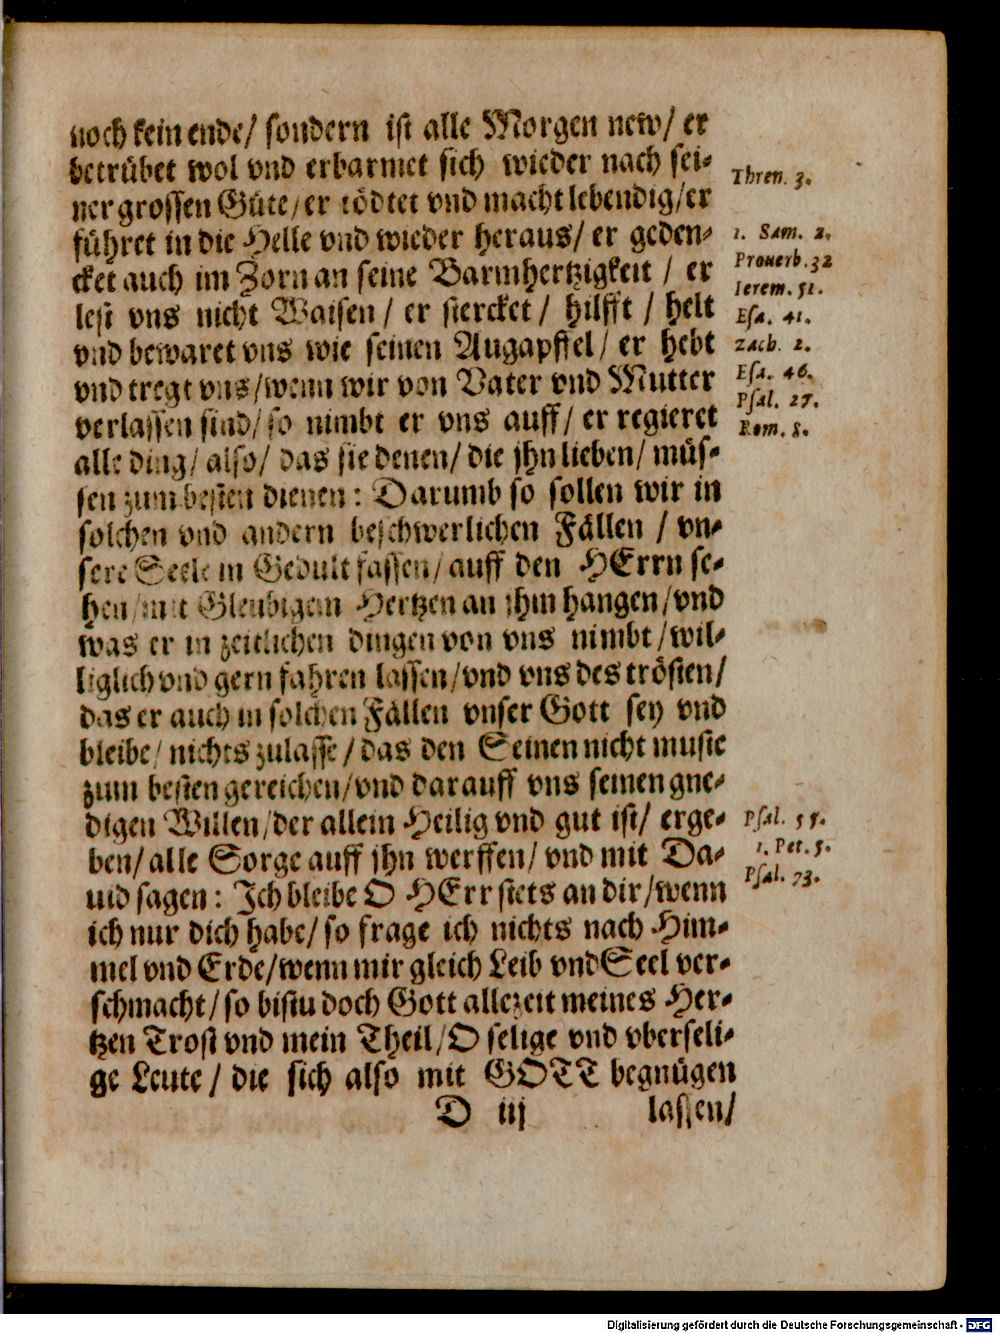 noch kein ende/ sondern ist alle Morgen new/ er
betrübet wol vnd erbarmet sich wieder nach sei-
ner grossen Güte/ er tödtet vnd macht lebendig/ er
führet in die Helle vnd wieder heraus/ er geden-
cket auch im Zorn an seine Barmhertzigkeit / er
lest vns nicht Waisen / er stercket / hilfft / helt
vnd bewaret vns wie seinen Augapffel/ er hebt
vnd tregt vns/ wenn wir von Vater vnd Mutter
verlassen sind/ so nimbt er vns auff/ er regieret
alle ding/ also/ das sie denen/ die jhn lieben/ müs-
sen zum besten dienen: Darumb so sollen wir in
solchen vnd andern beschwerlichen Fällen / vn-
sere Seele in Gedult fassen/ auff den HErrn se-
hen/ mit Gleubigem Hertzen an jhm hangen/ vnd
was er in zeitlichen dingen von vns nimbt/ wil-
liglich vnd gern fahren lassen/ vnd vns des trösten/
das er auch in solchen Fällen vnser Gott sey vnd
bleibe/ nichts zulasse/ das den Seinen nicht muste
zum besten gereichen/ vnd darauff vns seinen gne-
digen Willen/ der allein Heilig vnd gut ist/ erge-
ben/ alle Sorge auff jhn werffen/ vnd mit Da-
uid sagen: Ich bleibe O HErr stets an dir/ wenn
ich nur dich habe/ so frage ich nichts nach Him-
mel vnd Erde/ wenn mir gleich Leib vnd Seel ver-
schmacht/ so bistu doch Gott allezeit meines Her-
tzen Trost vnd mein Theil/ O selige vnd vberseli-
ge Leute / die sich also mit GOTT begnügen
D iij lassen/
Thren. 3.
1. Sam. 2.
Prouerb. 32
Ierem. 51.
Esa. 41.
Zach. 2.
Esa. 46.
Psal. 27.
Rom. 8.
Psal. 55.
1. Pet. 5.
Psal. 73.
Digitalisierung gefördert durch die Deutsche Forschungsgemeinschaft - DFG